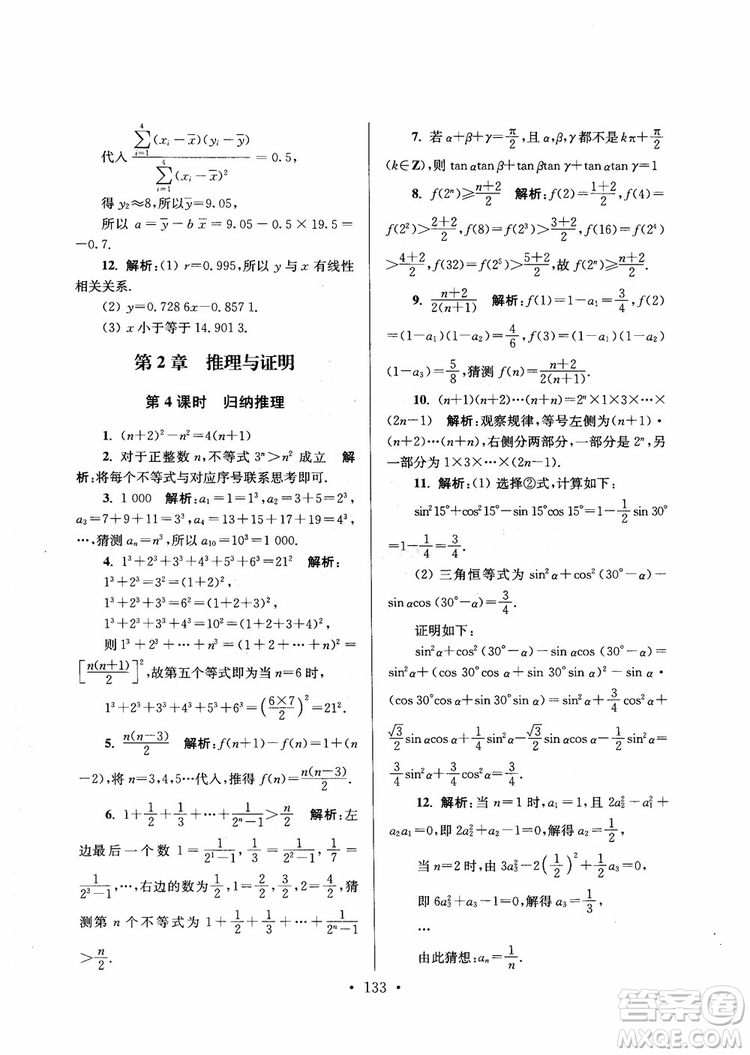 代入 \frac{\sum_{i=1}^{4}(x_i-\overline{x})(y_i-\overline{y})}{\sum_{i=1}^{4}(x_i-\overline{x})^2}=0.5,
得 y₂≈8,所以\overline{y}=9.05,
所以 a=\overline{y}-b\overline{x}=9.05-0.5×19.5=
-0.7.
12. 解析:(1) r=0.995,所以 y 与 x 有线性
相关关系.
(2) y=0.728 6x-0.857 1.
(3) x 小于等于 14.901 3.
第 2 章 推理与证明
第 4 课时 归纳推理
1. (n+2)²-n²=4(n+1)
2. 对于正整数 n,不等式 3ⁿ>n² 成立 解
析:将每个不等式与对应序号联系思考即可.
3. 1 000 解析:a₁=1=1³,a₂=3+5=2³,
a₃=7+9+11=3³,a₄=13+15+17+19=4³,
…,猜测 aₙ=n³,所以 a₁₀=10³=1 000.
4. 1³+2³+3³+4³+5³+6³=21² 解析:
1³+2³=(1+2)²,
1³+2³+3³=(1+2+3)²,
1³+2³+3³+4³=(1+2+3+4)²,
则 1³+2³+3³+4³+…+n³=
[\frac{n(n+1)}{2}]²,故第五个等式即为当 n=6 时,
1³+2³+3³+4³+5³+6³=(\frac{6×7}{2})²=21².
5. \frac{n(n-3)}{2} 解析:f(n+1)-f(n)=1+(n
-2),将 n=3,4,5…代入,推得 f(n)=\frac{n(n-3)}{2}.
6. 1+\frac{1}{2}+\frac{1}{3}+…+\frac{1}{2ⁿ-1}>\frac{n}{2} 解析:左
边最后一个数 1=\frac{1}{2¹-1},\frac{1}{3}=\frac{1}{2²-1},\frac{1}{7}=
\frac{1}{2³-1},…,右边的数为\frac{1}{2},1=\frac{2}{2},\frac{3}{2},…,猜
测第 n 个不等式为 1+\frac{1}{2}+\frac{1}{3}+…+\frac{1}{2ⁿ-1}
>\frac{n}{2}.
7. 若 α+β+γ=\frac{π}{2},且 α,β,γ 都不是 kπ+\frac{π}{2}
(k∈Z),则 tan αtan β+tan βtan γ+tan αtan γ=1
8. f(2ⁿ)≥\frac{n+2}{2} 解析:f(2)=\frac{1+2}{2},f(4)=
f(2²)>\frac{2+2}{2},f(8)=f(2³)>\frac{3+2}{2},f(16)=f(2⁴)
>\frac{4+2}{2},f(32)=f(2⁵)>\frac{5+2}{2},故 f(2ⁿ)≥\frac{n+2}{2}.
9. \frac{n+2}{2(n+1)} 解析:f(1)=1-a₁=\frac{3}{4},f(2)
=(1-a₁)(1-a₂)=\frac{4}{6},f(3)=(1-a₁)(1-a₂)
(1-a₃)=\frac{5}{8},猜测 f(n)=\frac{n+2}{2(n+1)}.
10. (n+1)(n+2)…(n+n)=2ⁿ×1×3×…×
(2n-1) 解析:观察规律,等号左侧为(n+1)·
(n+2)…(n+n),右侧分两部分,一部分是 2ⁿ,另
一部分为 1×3×…×(2n-1).
11. 解析:(1) 选择②式,计算如下:
sin²15°+cos²15°-sin 15°cos 15°=1-\frac{1}{2}sin 30°
=1-\frac{1}{4}=\frac{3}{4}.
(2) 三角恒等式为 sin²α+cos²(30°-α)-
sin αcos (30°-α)=\frac{3}{4}.
证明如下:
sin²α+cos²(30°-α)-sin αcos (30°-α)=
sin²α+(cos 30°cos α+sin 30°sin α)²-sin α·
(cos 30°cos α+sin 30°sin α)=sin²α+\frac{3}{4}cos²α+
\frac{\sqrt{3}}{2}sin αcos α+\frac{1}{4}sin²α-\frac{\sqrt{3}}{2}sin αcos α-\frac{1}{2}sin²α=
\frac{3}{4}sin²α+\frac{3}{4}cos²α=\frac{3}{4}.
12. 解析:当 n=1 时,因为 a₁=1,所以 2a₂²-a₁²+
a₂a₁=0,即 2a₂²+a₂-1=0,解得 a₂=\frac{1}{2},
当 n=2 时,由 3a₃²-2(\frac{1}{2})²+\frac{1}{2}a₃=0,
即 6a₃²+a₃-1=0,解得 a₃=\frac{1}{3},
…
由此猜想:aₙ=\frac{1}{n}.
• 133 •
答案圈
MXQE.COM